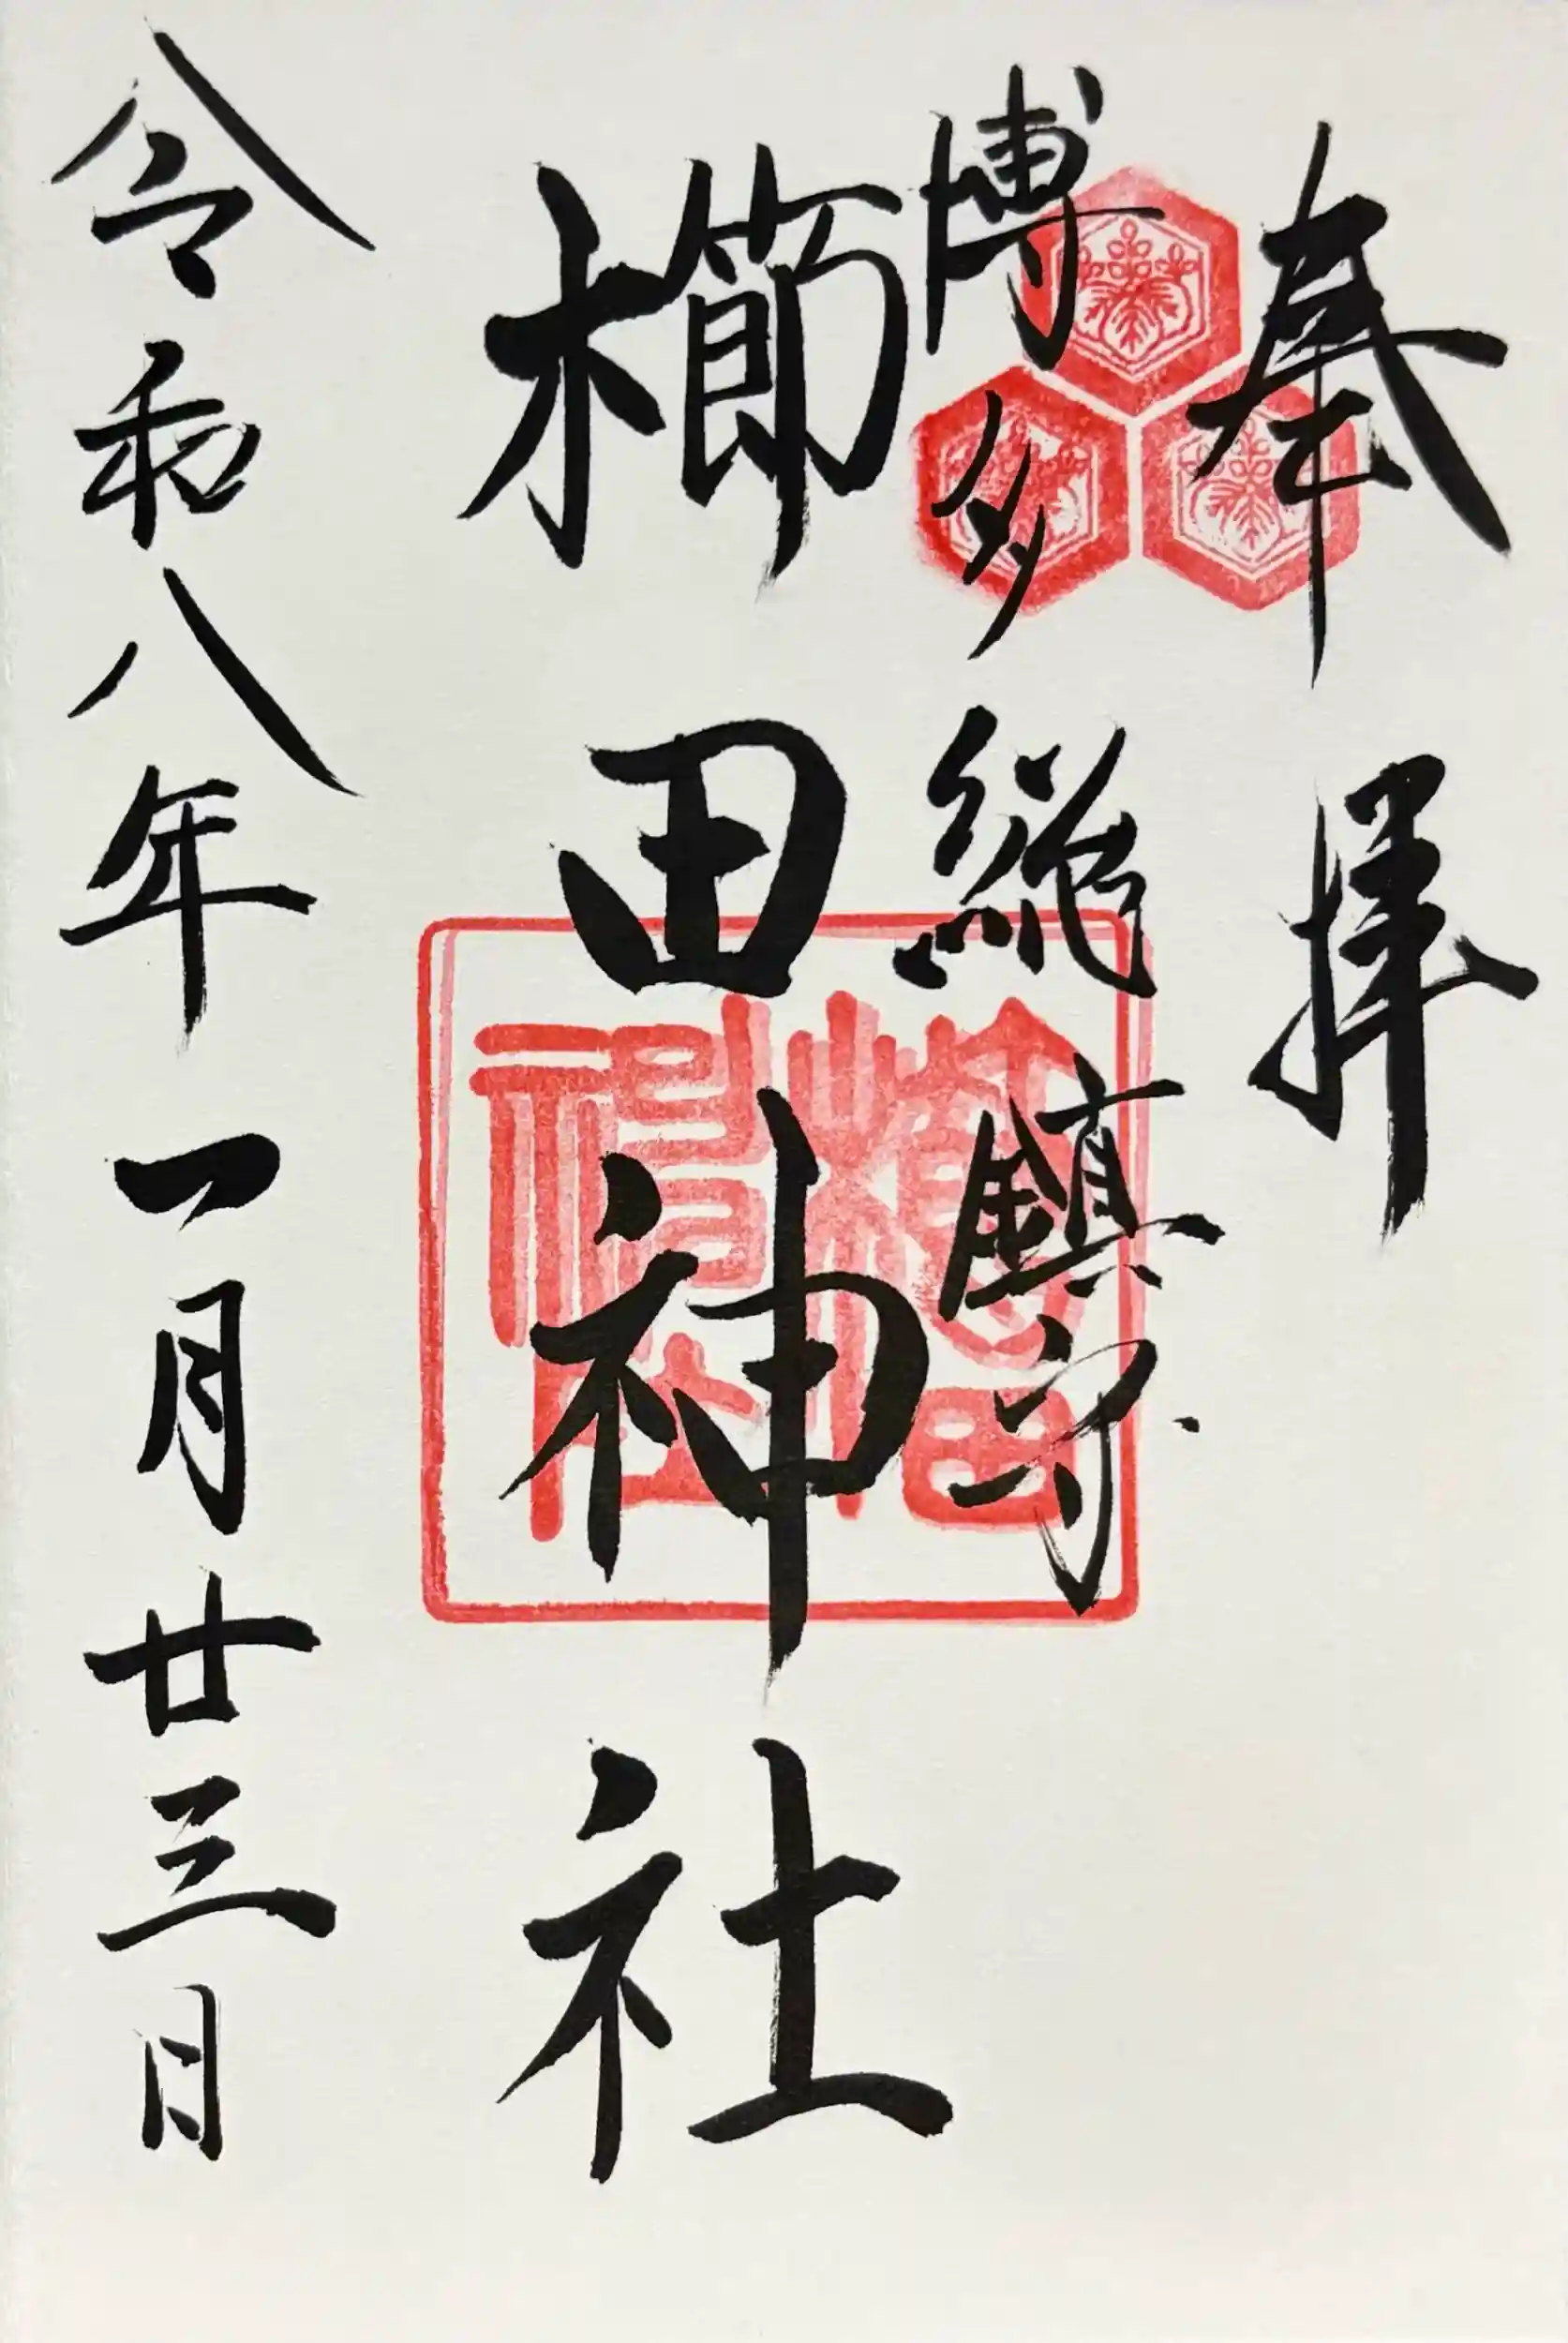 奉拝
博多總鎮守
櫛田神社
令和八年一月廿三日
櫛田神社